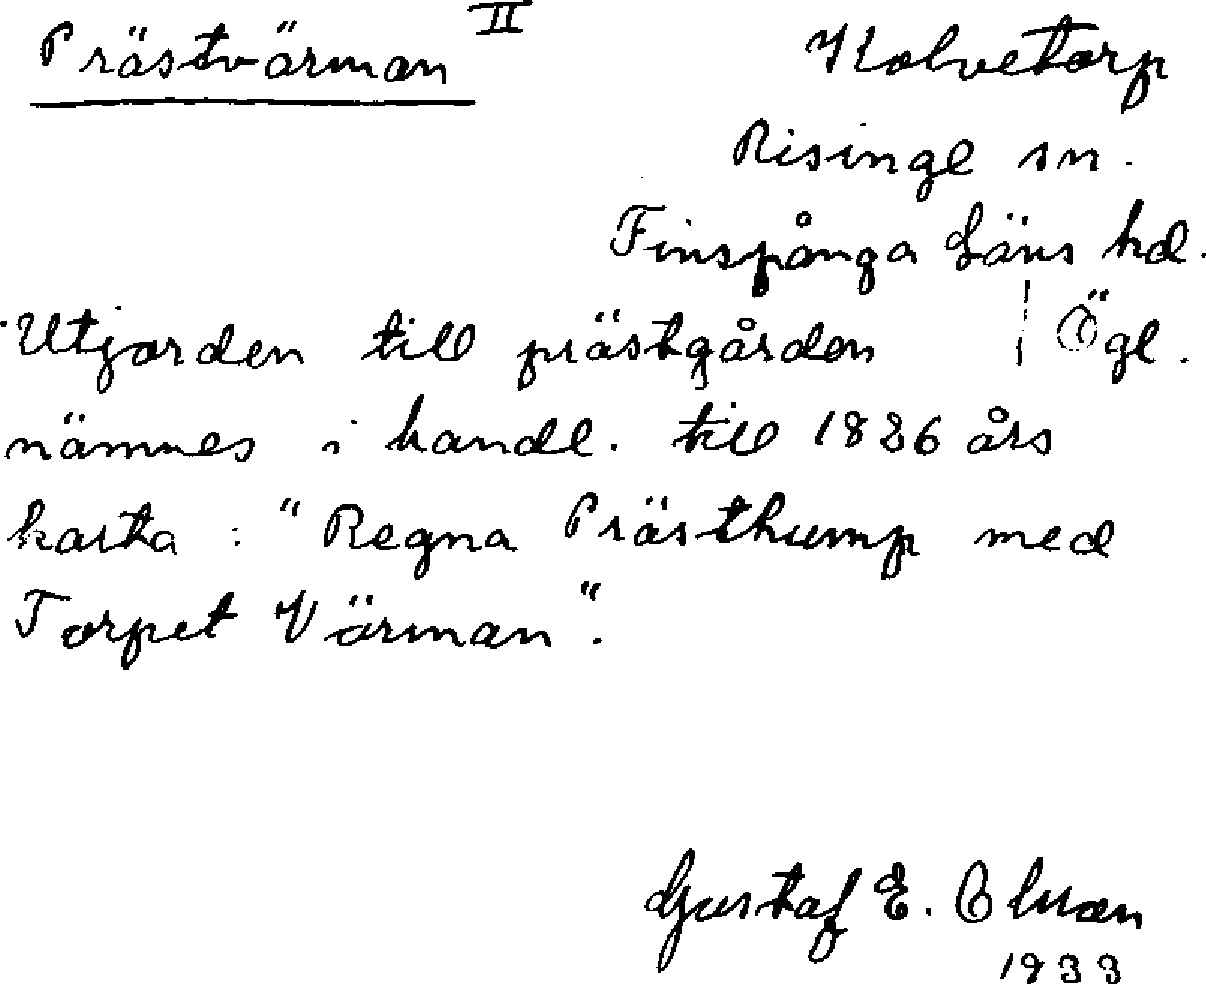 Prästvärman II
Kolvetorp
Risinge sn.
Finspånga Läns hd.
Utjorden till prästgården / Ögl.
nämnes i handl. till 1836 års
karta : "Regna Prästhump med
Torpet Värman".
Gustaf E. Olsson
1933